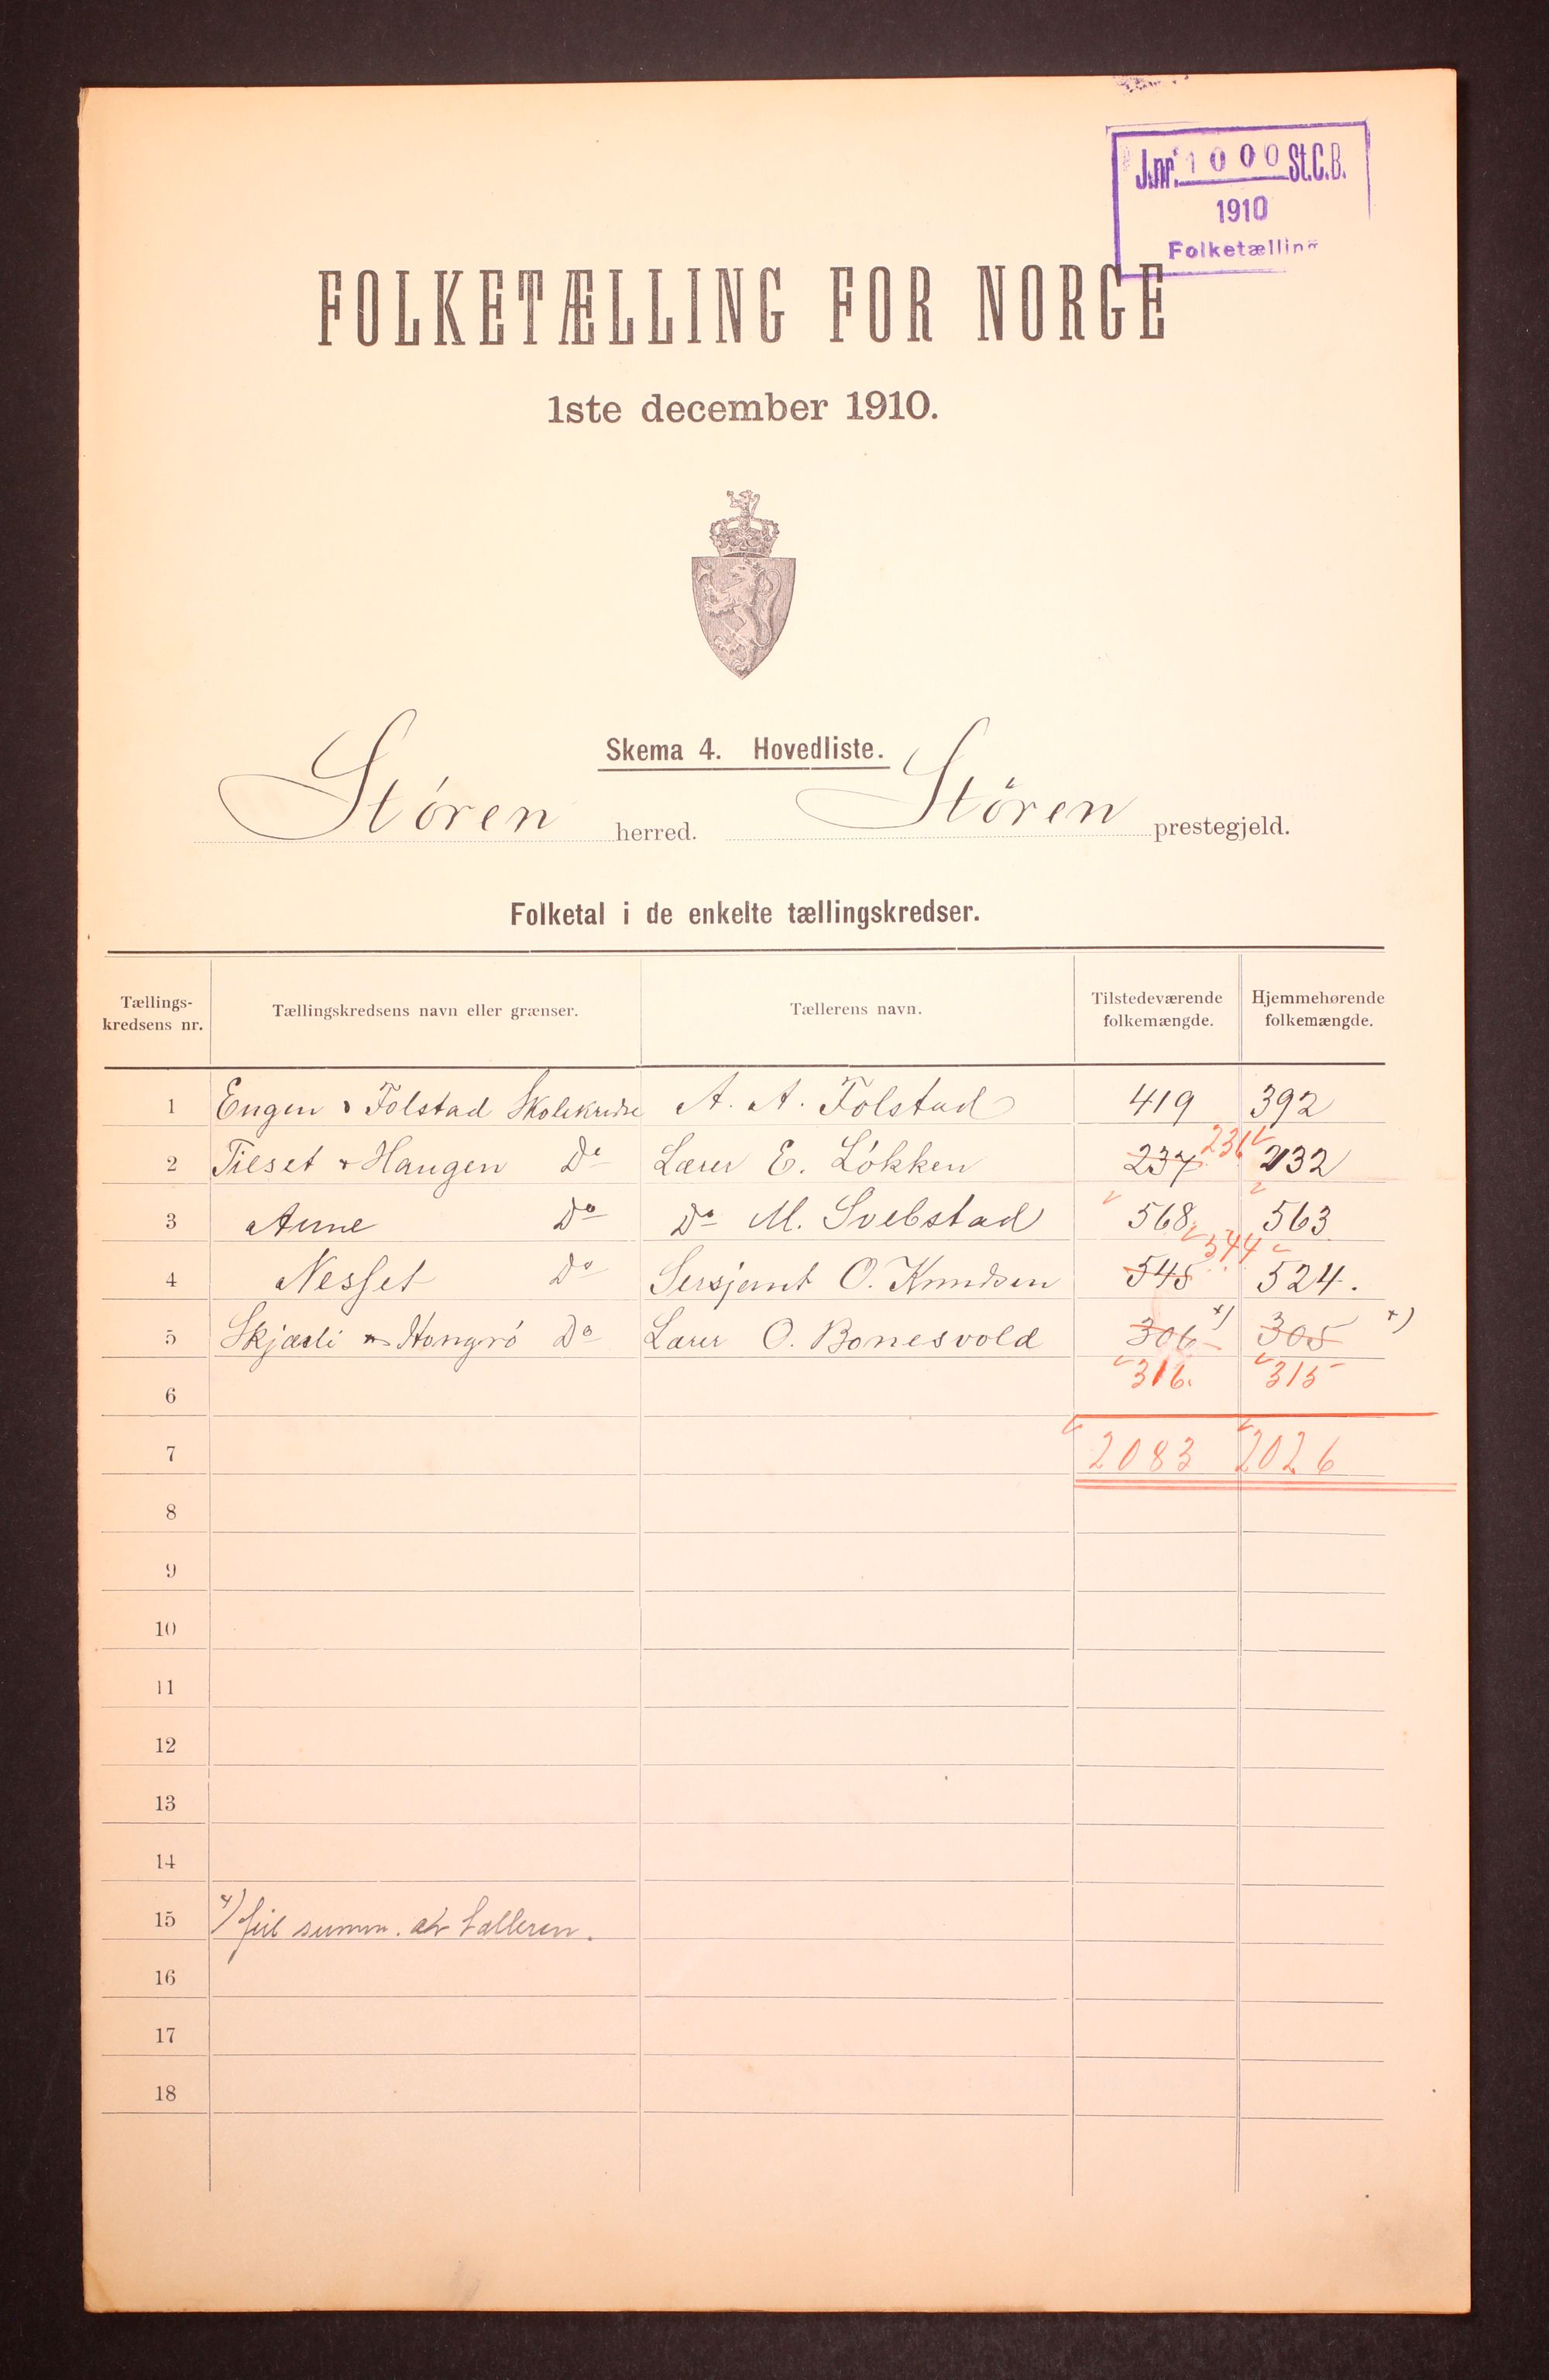 J.nr. 1000 St.C.B.
1910
Folketælling
FOLKETÆLLING FOR NORGE
1ste december 1910.
Skema 4. Hovedliste.
Støren herred. Støren prestegjeld.
Folketal i de enkelte tællingskredser.
Tællings-kredsens nr. Tællingskredsens navn eller grænser. Tællerens navn. Tilstedeværende folkemængde. Hjemmehørende folkemængde.
1 Engen & Folstad Skolekreds A. A. Folstad 419 392
2 Tilset & Haugen Do Lærer E. Løkken 237 236 232
3 Aune Do Do M. Svebstad 568 563
4 Nesset Do Sersjant O. Knudsen 545 544 524.
5 Skjærli & Hongrø Do Lærer O. Bonesvold 306 x) 305 x)
6 316. 315
7 2083 2026
8
9
10
11
12
13
14
15 x) feil summ. av tælleren.
16
17
18